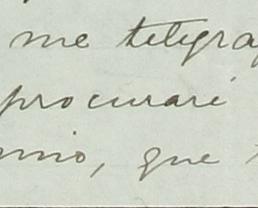 me telegra
procurari
nnio, que